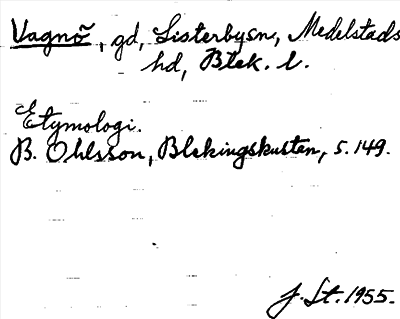 Vagnö, gd, Listerbysn, Medelstads
hd, Blek. l.
Etymologi.
B. Ohlsson, Blekingskusten, s. 149.
J. St. 1955.